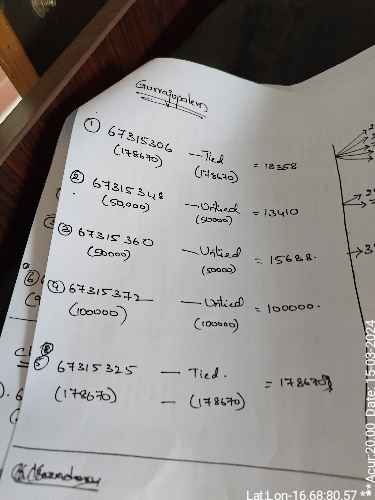 Gurrajupalem
① 67315306 — Tied = 18358
(178670) (178670)
② 67315348 — Untied = 13410
(50,000) (50000)
③ 67315360 — Untied = 15688.
(50000) (50000)
④ 67315372 — Untied = 100000.
(100000) (100000)
⑤ 67315325 — Tied. = 178670
(178670) — (178670)
Lat:Lon-16.68:80.57 *** Acur:20.00 Date: 15-03-2024